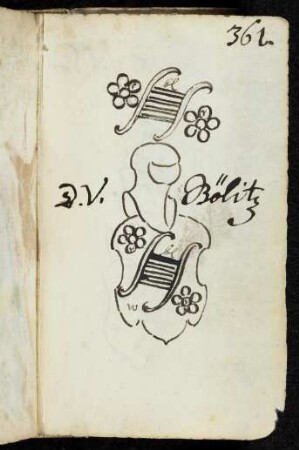 361.
R
D. V. Bölitz
R
W